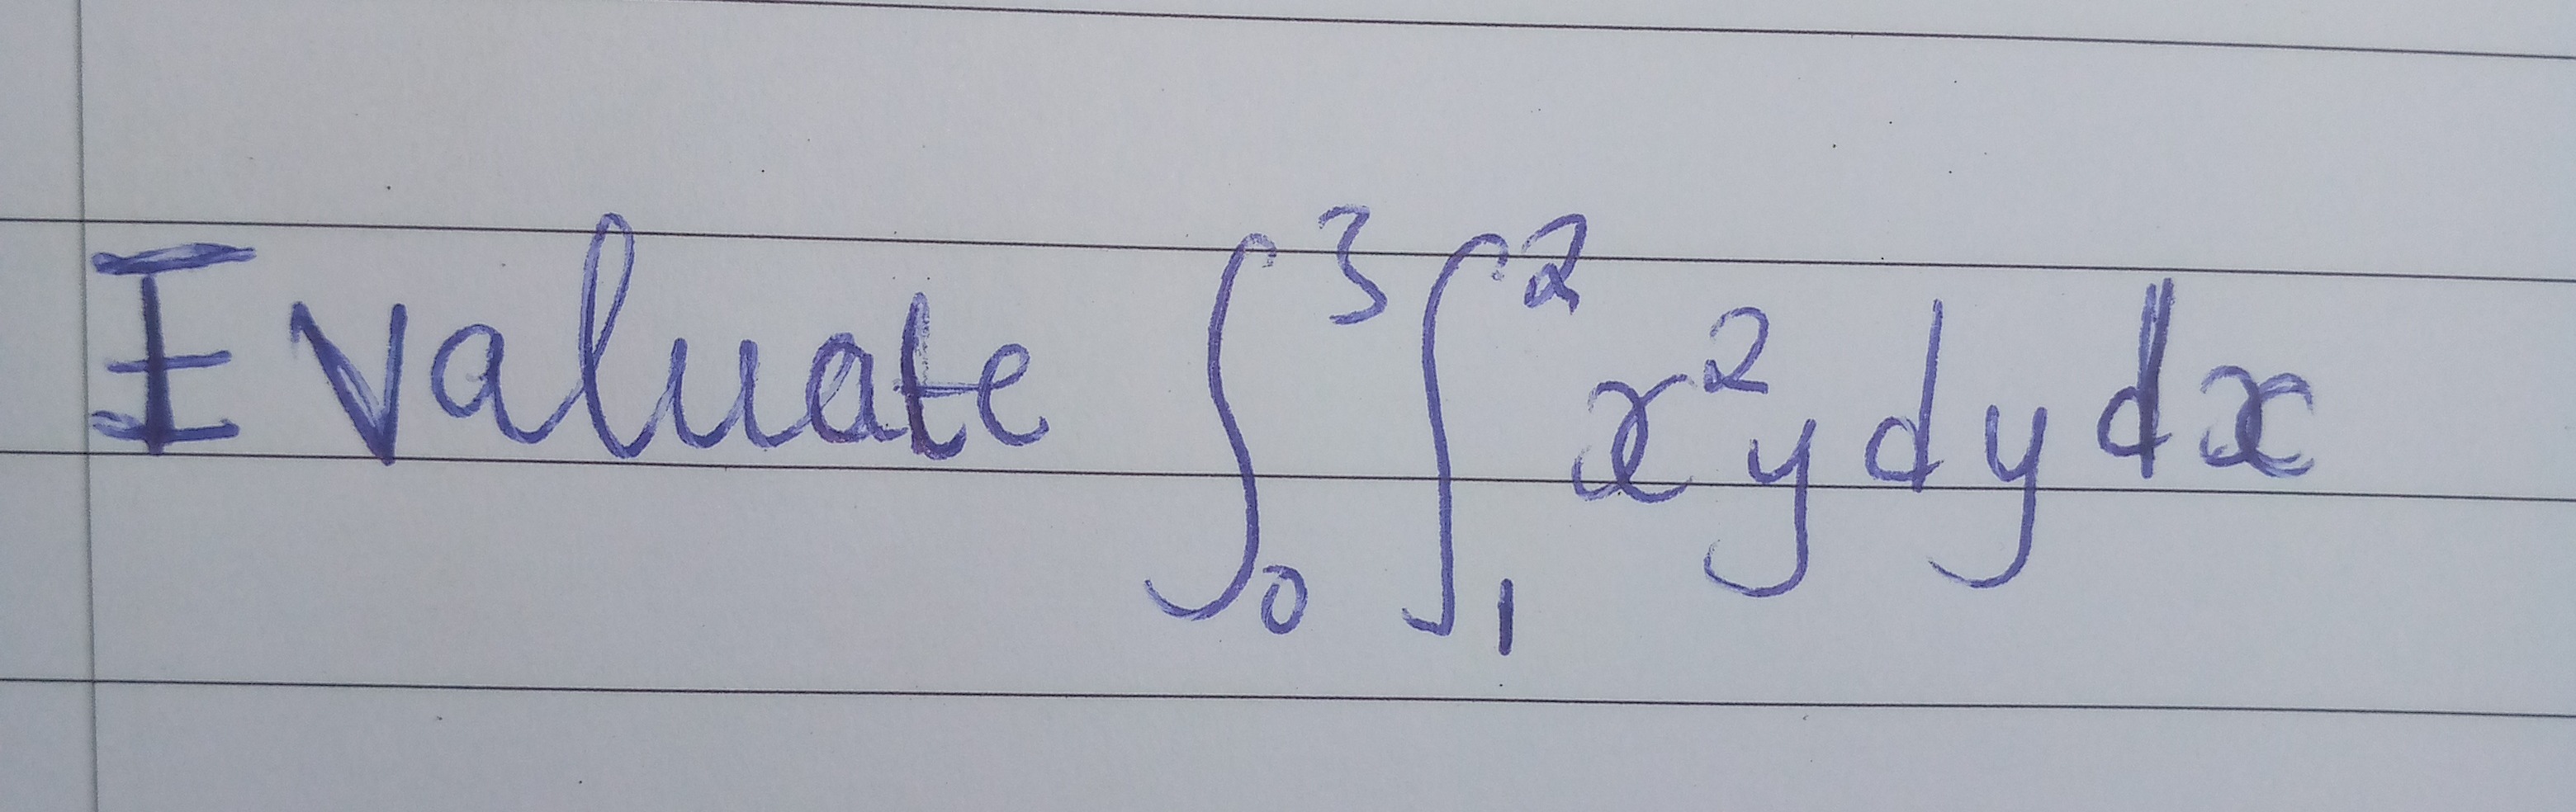 Evaluate ∫₀³ ∫₁² x²y dy dx